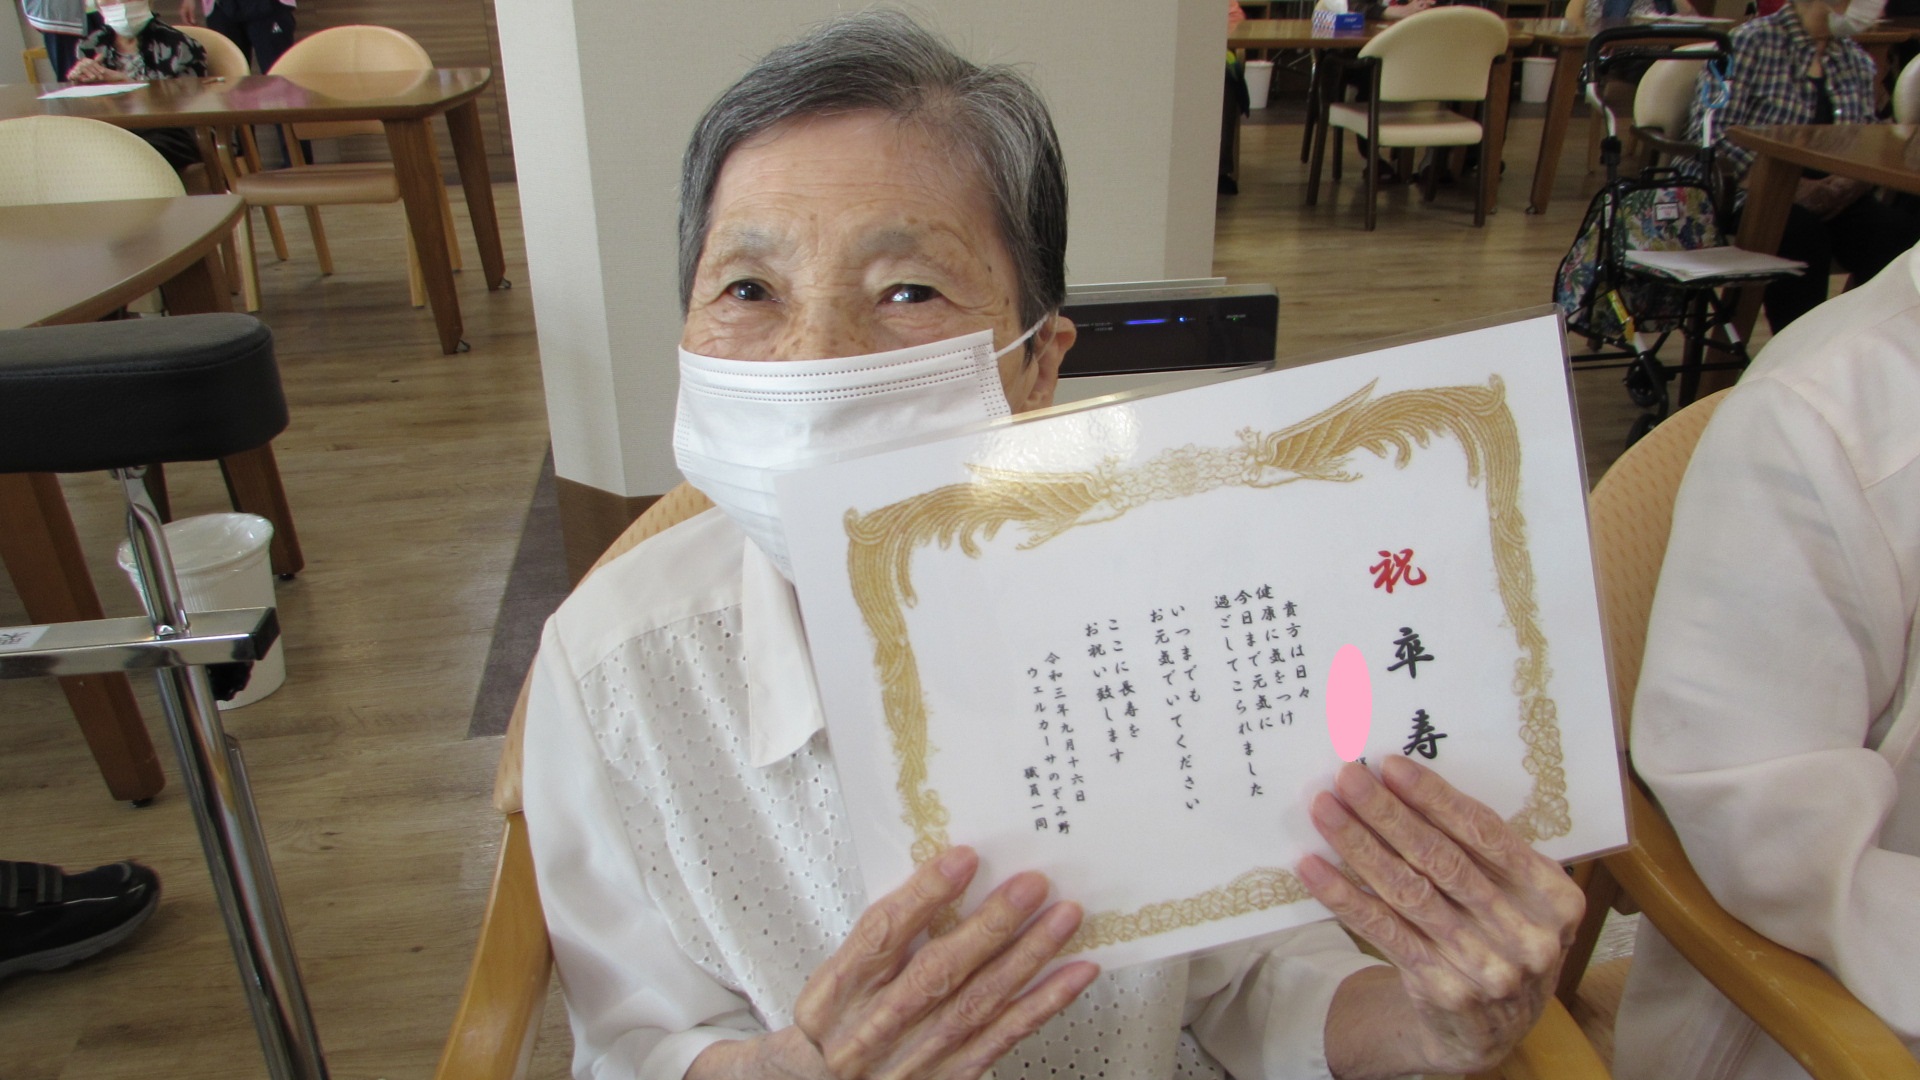 祝卒寿
様
貴方は日々
健康に気をつけ
今日まで元気に
過ごしてこられました
いつまでも
お元気でいてください
ここに長寿を
お祝い致します
令和三年九月十六日
ウェルカーサのぞみ野
職員一同